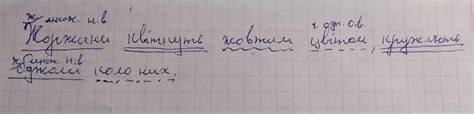 ж. множ. н.в. ч. одн. о.в.
Жоржини квітнуть жовтим цвітом, кружляють
ж. множ. н.в
бджоли коло них.